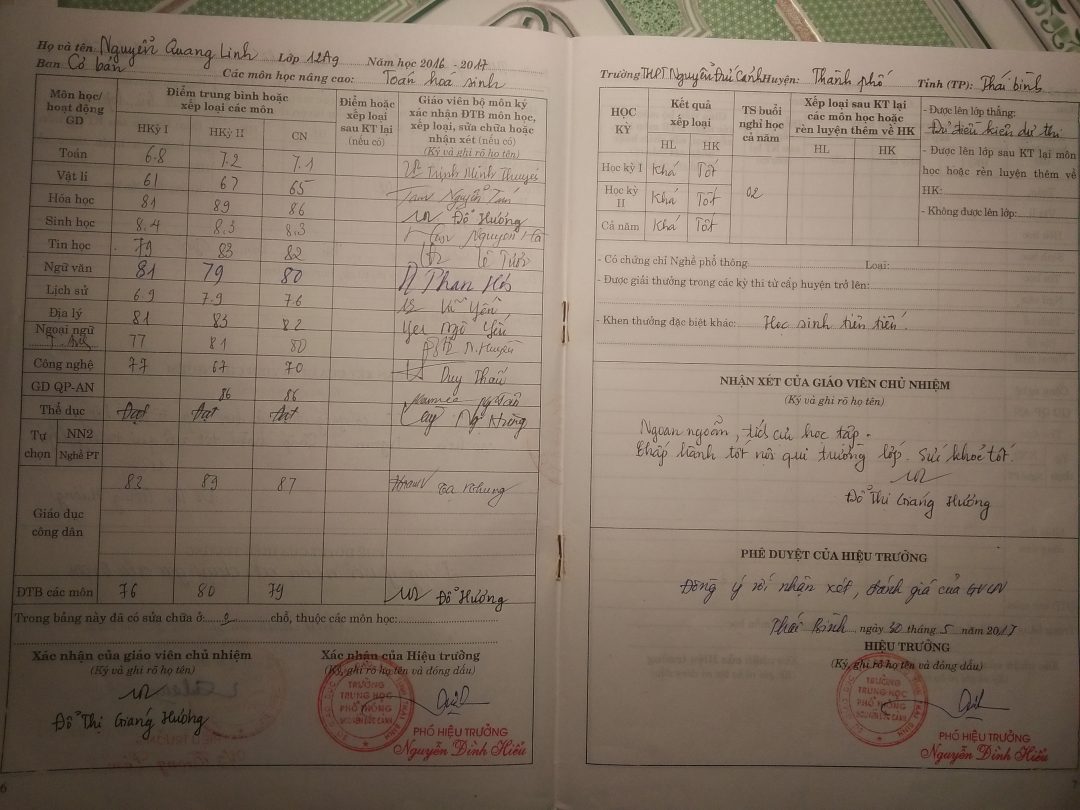 Họ và tên: Nguyễn Quang Linh Lớp 12A9 Năm học 2016 - 2017
Ban Cơ bản Các môn học nâng cao: Toán hoá sinh
Môn học/ hoạt động GD
Điểm trung bình hoặc xếp loại các môn
HKỳ I HKỳ II CN
Điểm hoặc xếp loại sau KT lại (nếu có)
Giáo viên bộ môn ký xác nhận ĐTB môn học, xếp loại, sửa chữa hoặc nhận xét (nếu có)
(Ký và ghi rõ họ tên)
Toán 6.8 7.2 7.1 Trịnh Minh
Vật lí 61 67 65 Nguyễn
Hóa học 81 89 86 Đỗ Hương
Sinh học 8.4 8.3 8.3 Nguyễn Hà
Tin học 79 83 82 Lê
Ngữ văn 81 79 80 Phan
Lịch sử 6.9 7.9 76 Vũ Yến
Địa lý 81 83 82 Ngô Yến
Ngoại ngữ T. Anh 77 81 80 N. Huyền
Công nghệ 77 67 70 Duy
GD QP-AN 86 86
Thể dục Đạt Đạt Đạt
Tự chọn NN2
Nghề PT
Giáo dục công dân 82 89 87 Nhung
ĐTB các môn 76 80 79 Đỗ Hương
Trong bảng này đã có sửa chữa ở: chỗ, thuộc các môn học:
Xác nhận của giáo viên chủ nhiệm
(Ký và ghi rõ họ tên)
Đỗ Thị Giang Hương
Xác nhận của Hiệu trưởng
(Ký, ghi rõ họ tên và đóng dấu)
TRƯỜNG
TRUNG HỌC
PHỔ THÔNG
NGUYỄN ĐỨC CẢNH
PHÓ HIỆU TRƯỞNG
Nguyễn Đình Hiếu
6
Trường THPT Nguyễn Đức Cảnh Huyện: Thành phố Tỉnh (TP): Thái bình
HỌC KỲ
Kết quả xếp loại
HL HK
TS buổi nghỉ học cả năm
Xếp loại sau KT lại các môn học hoặc rèn luyện thêm về HK
HL HK
Học kỳ I Khá Tốt
Học kỳ II Khá Tốt 02
Cả năm Khá Tốt
- Được lên lớp thẳng:
Đủ điều kiện dự thi
- Được lên lớp sau KT lại môn
học hoặc rèn luyện thêm về
HK:
- Không được lên lớp:
- Có chứng chỉ Nghề phổ thông: Loại:
- Được giải thưởng trong các kỳ thi từ cấp huyện trở lên:
- Khen thưởng đặc biệt khác: Học sinh tiên tiến.
NHẬN XÉT CỦA GIÁO VIÊN CHỦ NHIỆM
(Ký và ghi rõ họ tên)
Ngoan ngoãn, tích cực học tập.
Chấp hành tốt nội qui trường lớp. Sức khoẻ tốt.
Đỗ Thị Giang Hương
PHÊ DUYỆT CỦA HIỆU TRƯỞNG
Đồng ý với nhận xét, đánh giá của GVCN
Thái Bình, ngày 30 tháng 5 năm 2017
HIỆU TRƯỞNG
(Ký, ghi rõ họ tên và đóng dấu)
TRƯỜNG
TRUNG HỌC
PHỔ THÔNG
NGUYỄN ĐỨC CẢNH
PHÓ HIỆU TRƯỞNG
Nguyễn Đình Hiếu
7